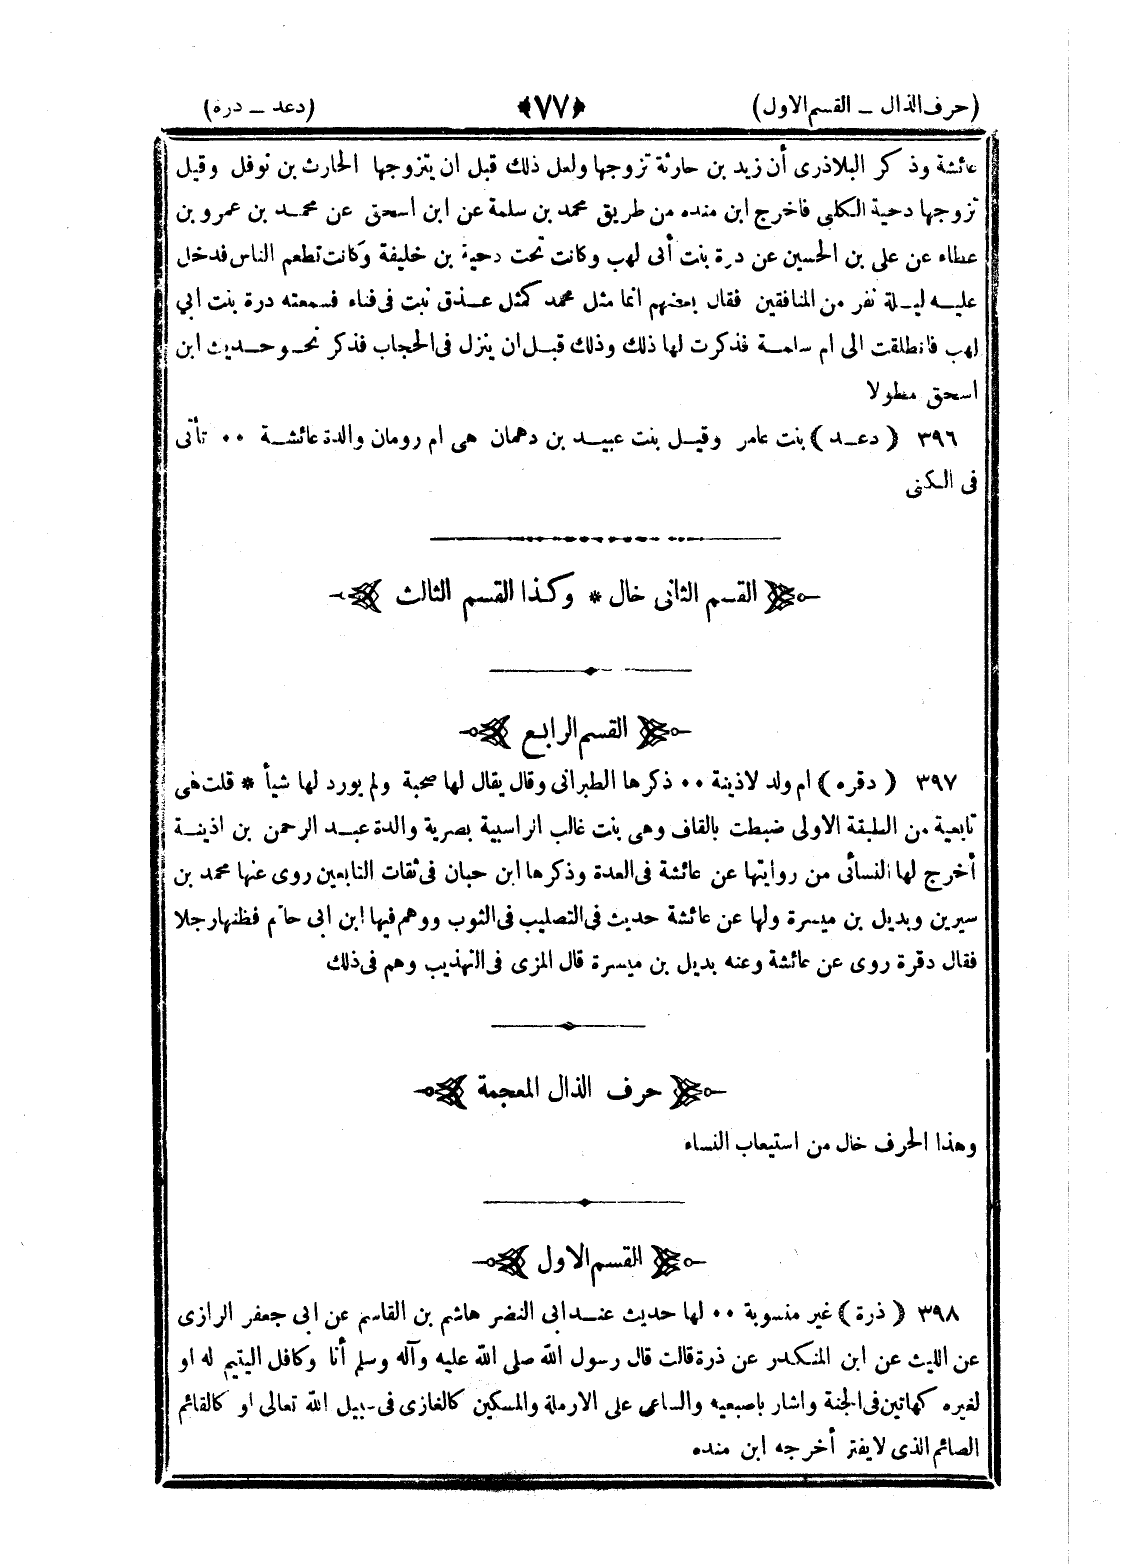 (حرف الذال ــ القسم الاول) ﴿٧٧﴾ (دعد ــ درة)
عائشة وذكر البلاذرى أن زيد بن حارثة تزوجها ولعل ذلك قبل ان يتزوجها الحارث بن نوفل وقيل
تزوجها دحية الكلبى فاخرج ابن منده من طريق محمد بن سلمة عن ابن اسحق عن محمد بن عمرو بن
عطاء عن على بن الحسين عن درة بنت أبى لهب وكانت تحت دحية بن خليفة وكانت تطعم الناس فدخل
عليه ليلة نفر من المنافقين فقال بعضهم انما مثل محمد كمثل عذق نبت فى فناء فسمعته درة بنت ابي
لهب فانطلقت الى ام سلمة فذكرت لها ذلك وذلك قبل ان ينزل فى الحجاب فذكر نحو حديث ابن
اسحق مطولا
٣٩٦ (دعد) بنت عامر وقيل بنت عبيد بن دهمان هى ام رومان والدة عائشة ٠٠ تأتى
فى الكنى
القسم الثانى خال * وكذا القسم الثالث
القسم الرابع
٣٩٧ (دقره) ام ولد لاذينة ٠٠ ذكرها الطبرانى وقال يقال لها صحبة ولم يورد لها شيأ * قلت هى
تابعية من الطبقة الاولى ضبطت بالقاف وهى بنت غالب الراسبية بصرية والدة عبد الرحمن بن اذينة
أخرج لها النسائى من روايتها عن عائشة فى العدة وذكرها ابن حبان فى ثقات التابعين روى عنها محمد بن
سيرين وبديل بن ميسرة ولها عن عائشة حديث فى التصليب فى الثوب ووهم فيها ابن ابى حاتم فظنها رجلا
فقال دقرة روى عن عائشة وعنه بديل بن ميسرة قال المزى فى التهذيب وهم فى ذلك
حرف الذال المعجمة
وهذا الحرف خال من استيعاب النساء
القسم الاول
٣٩٨ (ذرة) غير منسوبة ٠٠ لها حديث عند ابى النضر هاشم بن القاسم عن ابى جعفر الرازى
عن الليث عن ابن المنكدر عن ذرة قالت قال رسول الله صلى الله عليه وآله وسلم أنا وكافل اليتيم له او
لغيره كهاتين فى الجنة واشار باصبعيه والساعى على الارملة والمسكين كالغازى فى سبيل الله تعالى او كالقائم
الصائم الذى لا يفتر أخرجه ابن منده